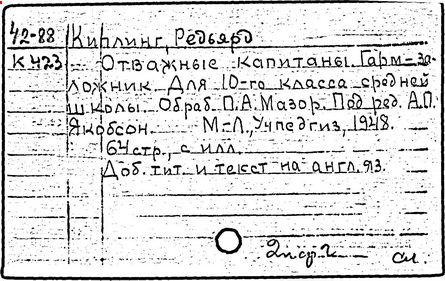 42-88 Киплинг, Редьярд
К 423 Отважные капитаны. Гарм-за-
ложник. Для 10-го класса средней
школы. Обраб. П.А. Мазор. Под ред. А.П.
Якобсон. М.-Л., Учпедгиз, 1948.
64 стр., с илл.
Доб. тит. и текст на англ. яз.